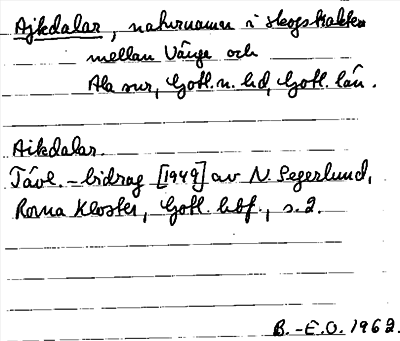 Ajkdalar, naturnamn i skogstrakten
mellan Vänge och
Ala snr, Gotl. n. hd, Gotl. län.
Aikdalar.
Tävl.-bidrag [1949] av N. Segerlund,
Roma Kloster, Gotl. hbf., s. 2.
B.-E.O. 1962.